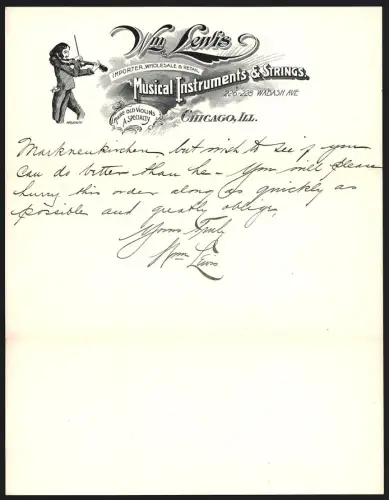 Wm Lewis
IMPORTER, WHOLESALE & RETAIL
Musical Instruments & Strings.
RARE OLD VIOLINS
A SPECIALTY
226-228 WABASH AVE
CHICAGO, ILL.
Markneukirchen but wish to see if you
can do better than he – You will please
hurry this order along as quickly as
possible and greatly oblige,
Yours Truly
Wm Lewis